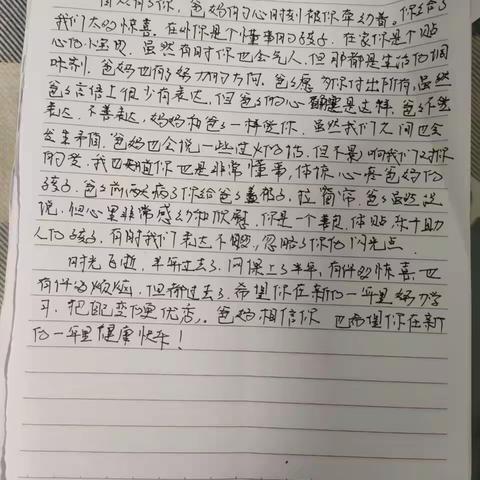 因为有了你，爸妈的心时刻被你牵动着。你给了
我们太多惊喜。在外你是个懂事的孩子，在家你是个贴
心的小宝贝。虽然有时你也会气人，但那都是生活的调
味剂。爸妈也有努力的方向。爸爸愿为你付出所有，虽然
爸爸言语上很少有表达，但爸爸的心都是这样。爸爸不会
表达，不善表达，妈妈和爸爸一样爱你。虽然我们之间也会
发生矛盾，爸妈也会说一些过火的话，但不影响我们对你
的爱。我也知道你也是非常懂事，体谅、心疼爸妈的
孩子。爸爸前两天病了你给爸爸盖被子，拉窗帘，爸爸虽然没
说，但心里非常感动和欣慰。你是一个善良、体贴、乐于助
人的孩子，有时我们表达不够，忽略了你的闪光点。
时光飞逝，半年过去了，网课上了半年，有你的惊喜也
有你的烦恼，但都过去了。希望你在新的一年里努力学
习，把自己变的更优秀。爸妈相信你 也希望你在新
的一年里健康快乐！